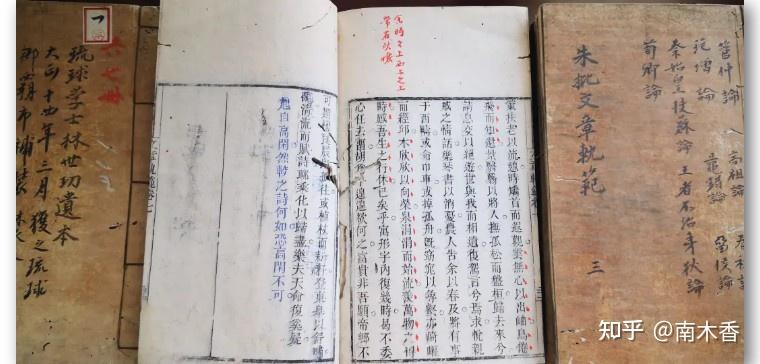 管仲論
高祖論
范增論
鼂錯論
秦始皇扶蘇論
王者不治夷狄論
荀卿論
留侯論
朱批文章軌範
三
策扶老以流憩時矯首而遐觀雲無心以出岫鳥倦
飛而知還景翳翳以將入撫孤松而盤桓歸去來兮
請息交以絕遊世與我而相遺復駕言兮焉求悅親
戚之情話樂琴書以消憂農人告余以春及將有事
于西疇或命巾車或棹孤舟旣窈窕以尋壑亦崎嶇
而經邱木欣欣以向榮泉涓涓而始流羨萬物之得
時感吾生之行休已矣乎寓形宇內復幾時曷不委
心任去留胡為遑遑欲何之富貴非吾願帝鄉不
可期懷良辰以孤往或植杖而耘耔登東皐以舒嘯
臨清流而賦詩聊乘化以歸盡樂夫天命復奚疑
自高閑然較之詩何如恐高閑不可
一
琉球学士林世功遺本
大正十四年三月獲之琉球
那霸市
知乎 @南木香